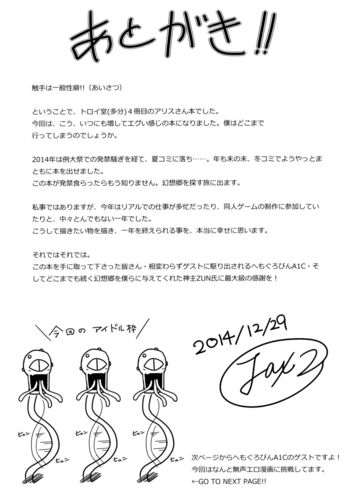 あとがき!!
触手は一般性癖!!（あいさつ）
ということで、トロイ堂(多分)４冊目のアリスさん本でした。
今回は、こう、いつにも増してエグい感じの本になりました。僕はどこまで
行ってしまうのでしょうか。
2014年は例大祭での発禁騒ぎを経て、夏コミに落ち……。年も末の末、冬コミでようやっとま
ともに本を出せました。
この本が発禁食らったらもう知りません。幻想郷を探す旅に出ます。
私事ではありますが、今年はリアルでの仕事が多忙だったり、同人ゲームの制作に参加してい
たりと、中々とんでもない一年でした。
こうして描きたい物を描き、一年を終えられる事を、本当に幸せに思います。
それではそれでは。
この本を手に取って下さった皆さん・相変わらずゲストに駆り出されるへもぐろびんA1C・そ
してどこまでも続く幻想郷を僕らに与えてくれた神主ZUN氏に最大級の感謝を！
＼今回のアイドル枠／
2014/12/29
ビュン
ビュン
ビュン
ビュン
次ページからへもぐろびんA1Cのゲストですよ！
今回はなんと無声エロ漫画に挑戦してます。
←GO TO NEXT PAGE!!